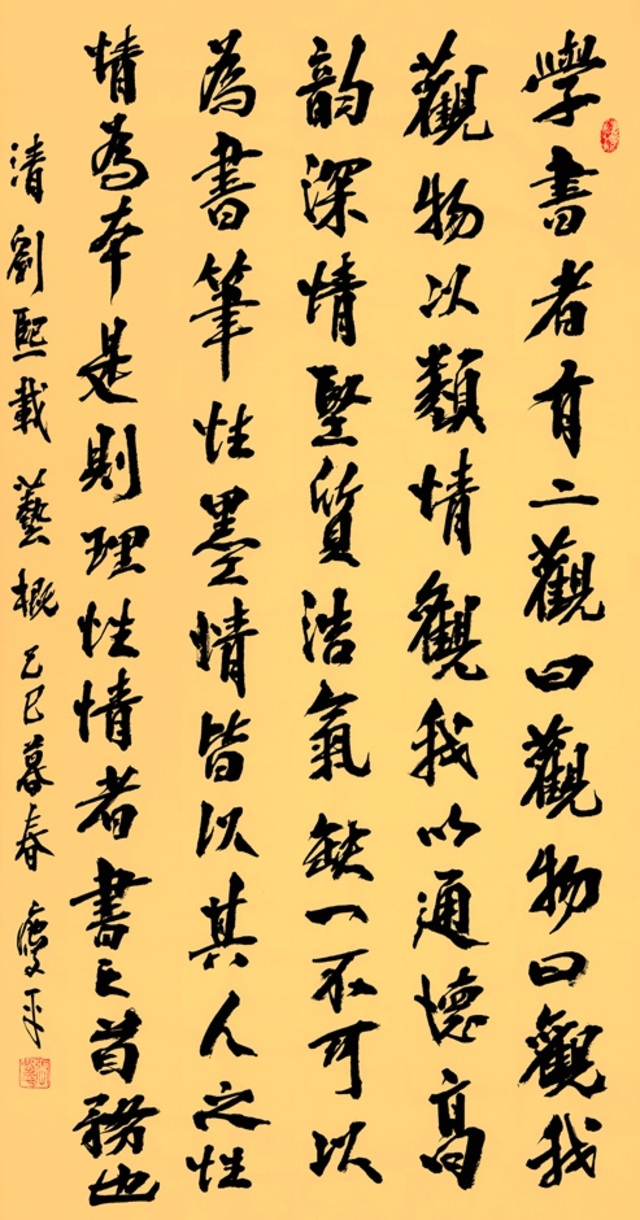 學書者有二觀曰觀物曰觀我
觀物以類情觀我以通德高
韵深情堅質浩氣缺一不可以
為書筆性墨情皆以其人之性
情為本是則理性情者書之首務也
清劉熙載藝概乙巳暮春